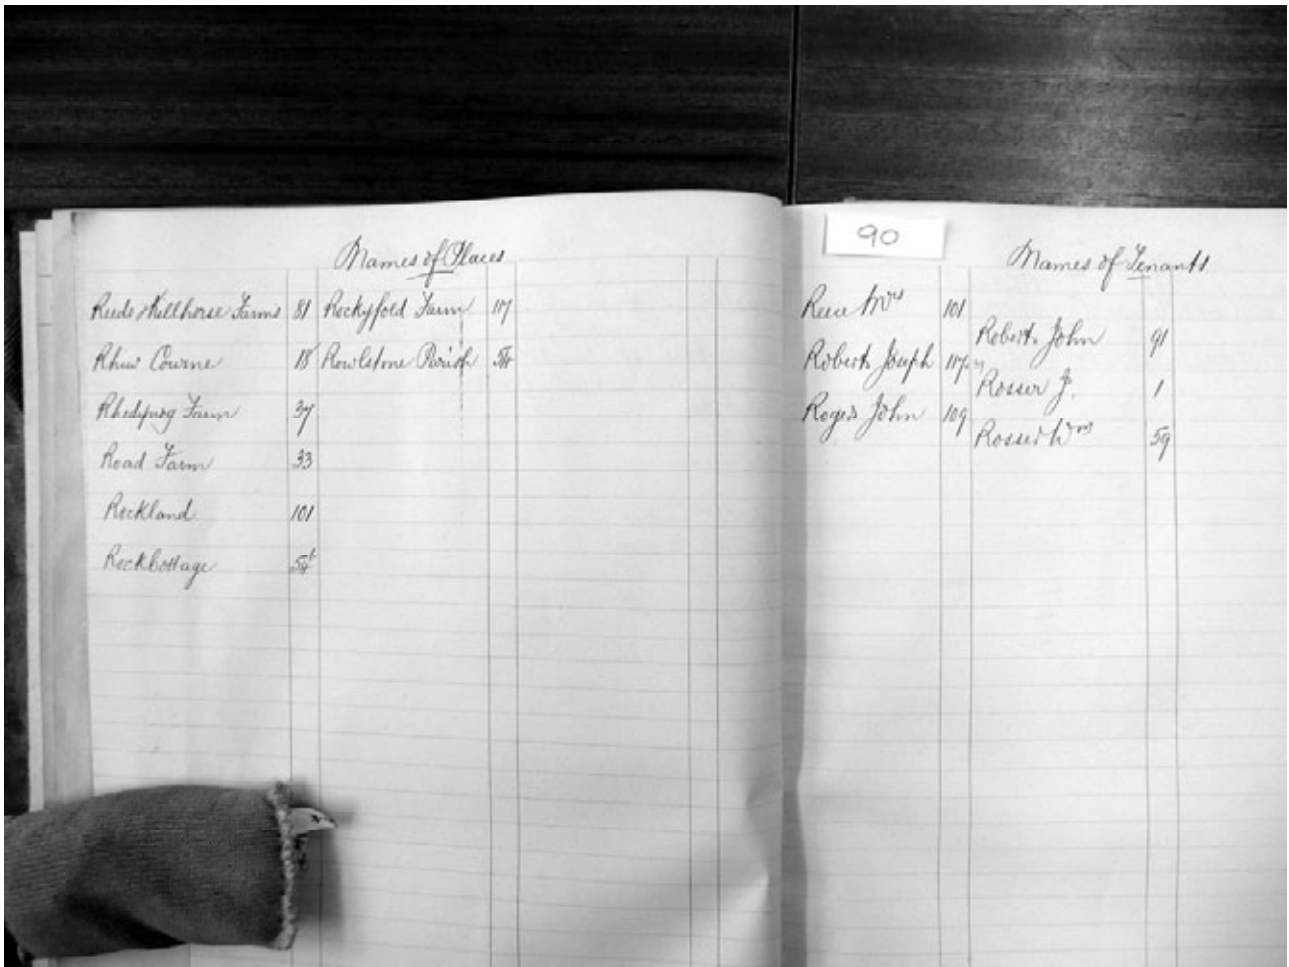 Names of Places
Reeds & Killhorse Farms 81 Rockyfold Farm 117
Rhiw Cowrne 18 Rowlstone Parish 54
Farm 37
Road Farm 33
Rockland 101
Rock Cottage 54
90
Names of Tenants
Reece Mrs 101
Roberts John 91
Roberts Joseph 117
Rosser J. 1
Rogers John 109
Rosser Wm 59